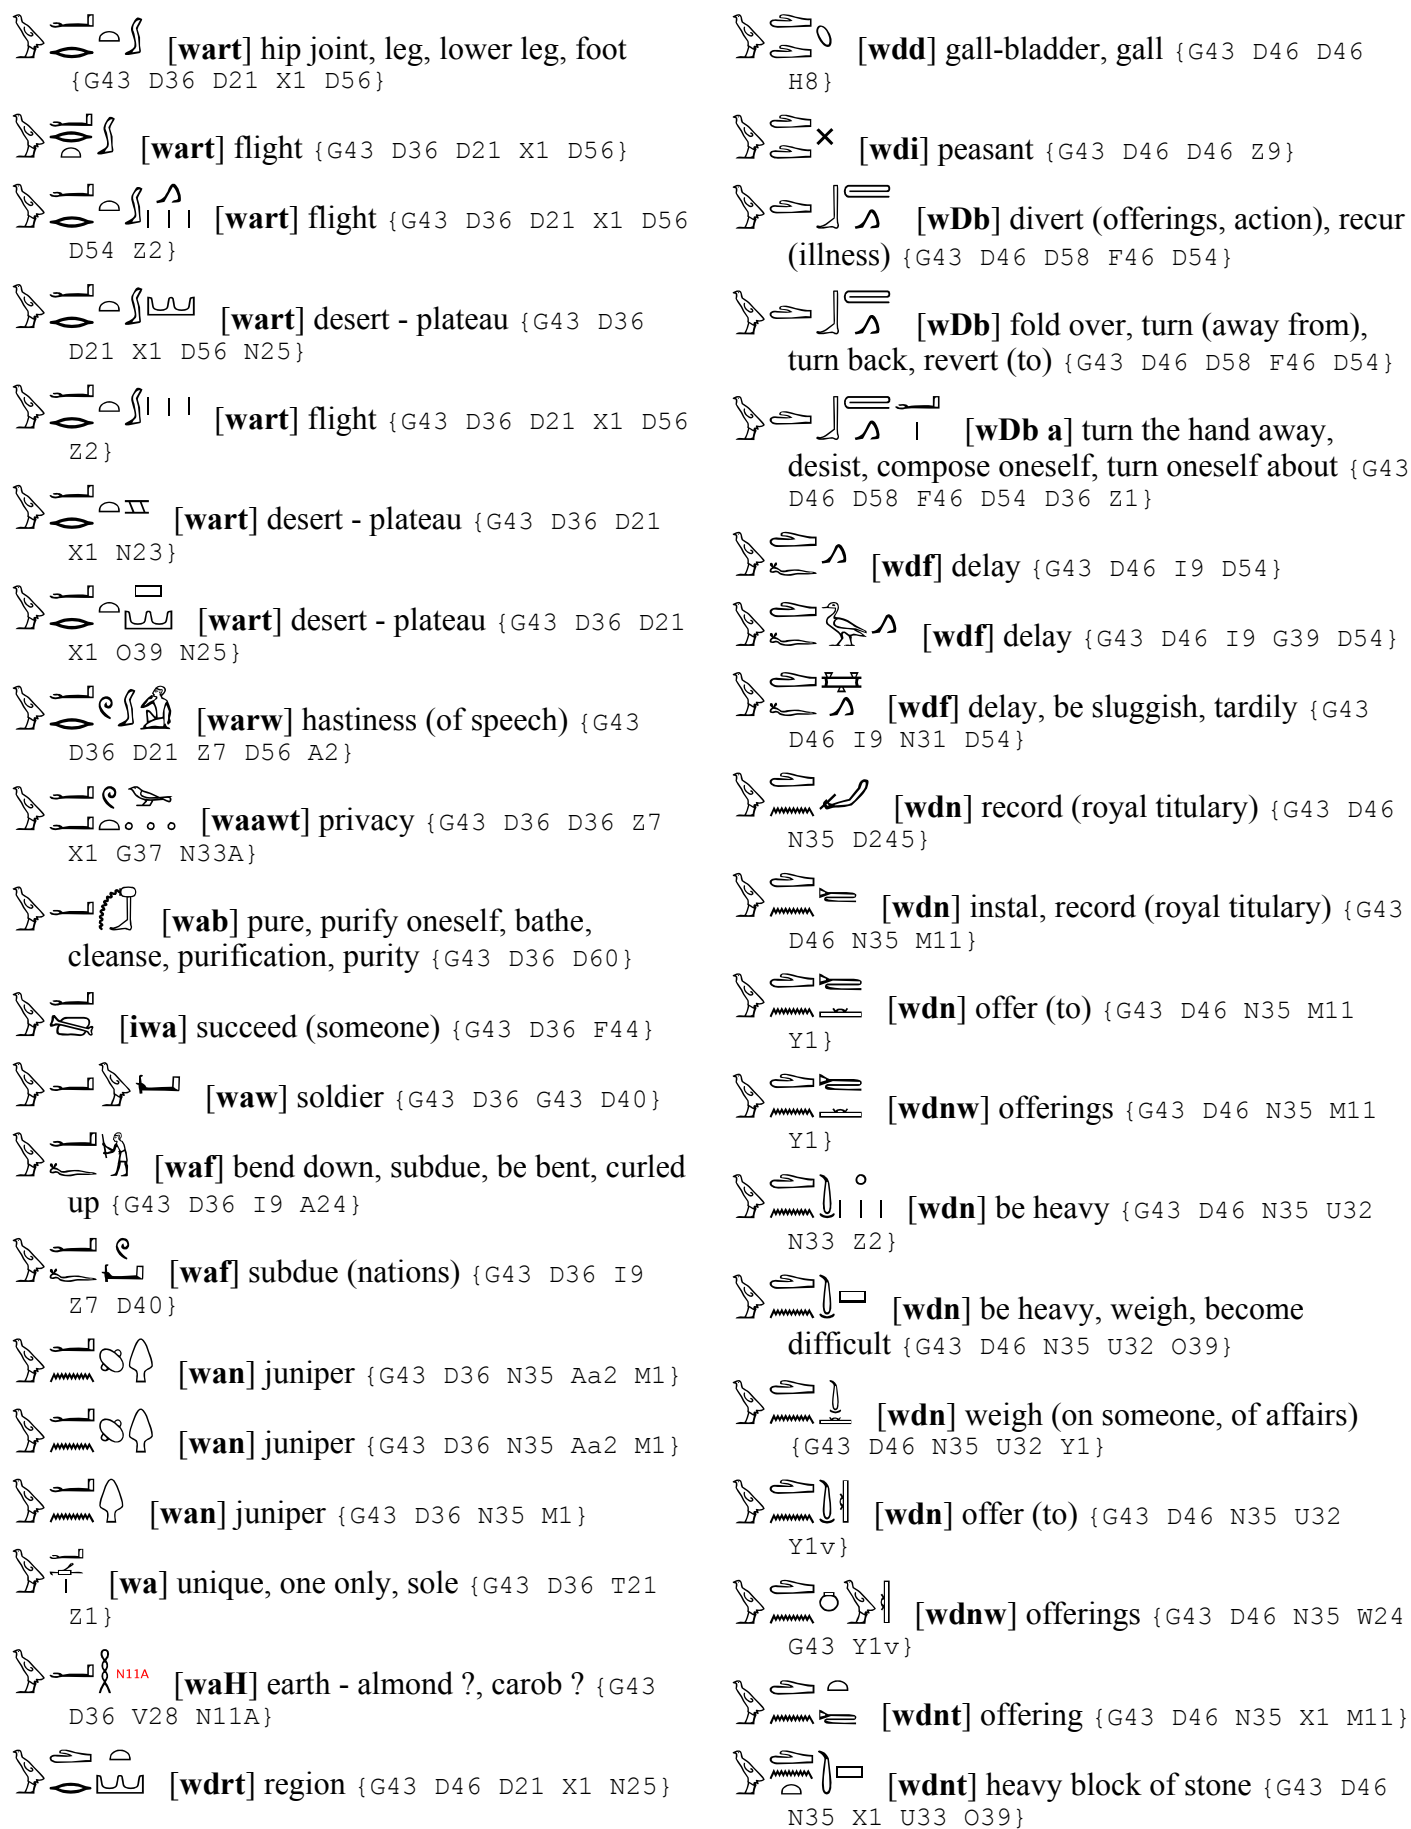 [wart] hip joint, leg, lower leg, foot
{G43 D36 D21 X1 D56}
[wart] flight {G43 D36 D21 X1 D56}
[wart] flight {G43 D36 D21 X1 D56
D54 Z2}
[wart] desert - plateau {G43 D36
D21 X1 D56 N25}
[wart] flight {G43 D36 D21 X1 D56
Z2}
[wart] desert - plateau {G43 D36 D21
X1 N23}
[wart] desert - plateau {G43 D36 D21
X1 O39 N25}
[warw] hastiness (of speech) {G43
D36 D21 Z7 D56 A2}
[waawt] privacy {G43 D36 D36 Z7
X1 G37 N33A}
[wab] pure, purify oneself, bathe,
cleanse, purification, purity {G43 D36 D60}
[iwa] succeed (someone) {G43 D36 F44}
[waw] soldier {G43 D36 G43 D40}
[waf] bend down, subdue, be bent, curled
up {G43 D36 I9 A24}
[waf] subdue (nations) {G43 D36 I9
Z7 D40}
[wan] juniper {G43 D36 N35 Aa2 M1}
[wan] juniper {G43 D36 N35 Aa2 M1}
[wan] juniper {G43 D36 N35 M1}
[wa] unique, one only, sole {G43 D36 T21
Z1}
N11A [waH] earth - almond ?, carob ? {G43
D36 V28 N11A}
[wdrt] region {G43 D46 D21 X1 N25}
[wdd] gall-bladder, gall {G43 D46 D46
H8}
[wdi] peasant {G43 D46 D46 Z9}
[wDb] divert (offerings, action), recur
(illness) {G43 D46 D58 F46 D54}
[wDb] fold over, turn (away from),
turn back, revert (to) {G43 D46 D58 F46 D54}
[wDb a] turn the hand away,
desist, compose oneself, turn oneself about {G43
D46 D58 F46 D54 D36 Z1}
[wdf] delay {G43 D46 I9 D54}
[wdf] delay {G43 D46 I9 G39 D54}
[wdf] delay, be sluggish, tardily {G43
D46 I9 N31 D54}
[wdn] record (royal titulary) {G43 D46
N35 D245}
[wdn] instal, record (royal titulary) {G43
D46 N35 M11}
[wdn] offer (to) {G43 D46 N35 M11
Y1}
[wdnw] offerings {G43 D46 N35 M11
Y1}
[wdn] be heavy {G43 D46 N35 U32
N33 Z2}
[wdn] be heavy, weigh, become
difficult {G43 D46 N35 U32 O39}
[wdn] weigh (on someone, of affairs)
{G43 D46 N35 U32 Y1}
[wdn] offer (to) {G43 D46 N35 U32
Y1v}
[wdnw] offerings {G43 D46 N35 W24
G43 Y1v}
[wdnt] offering {G43 D46 N35 X1 M11}
[wdnt] heavy block of stone {G43 D46
N35 X1 U33 O39}